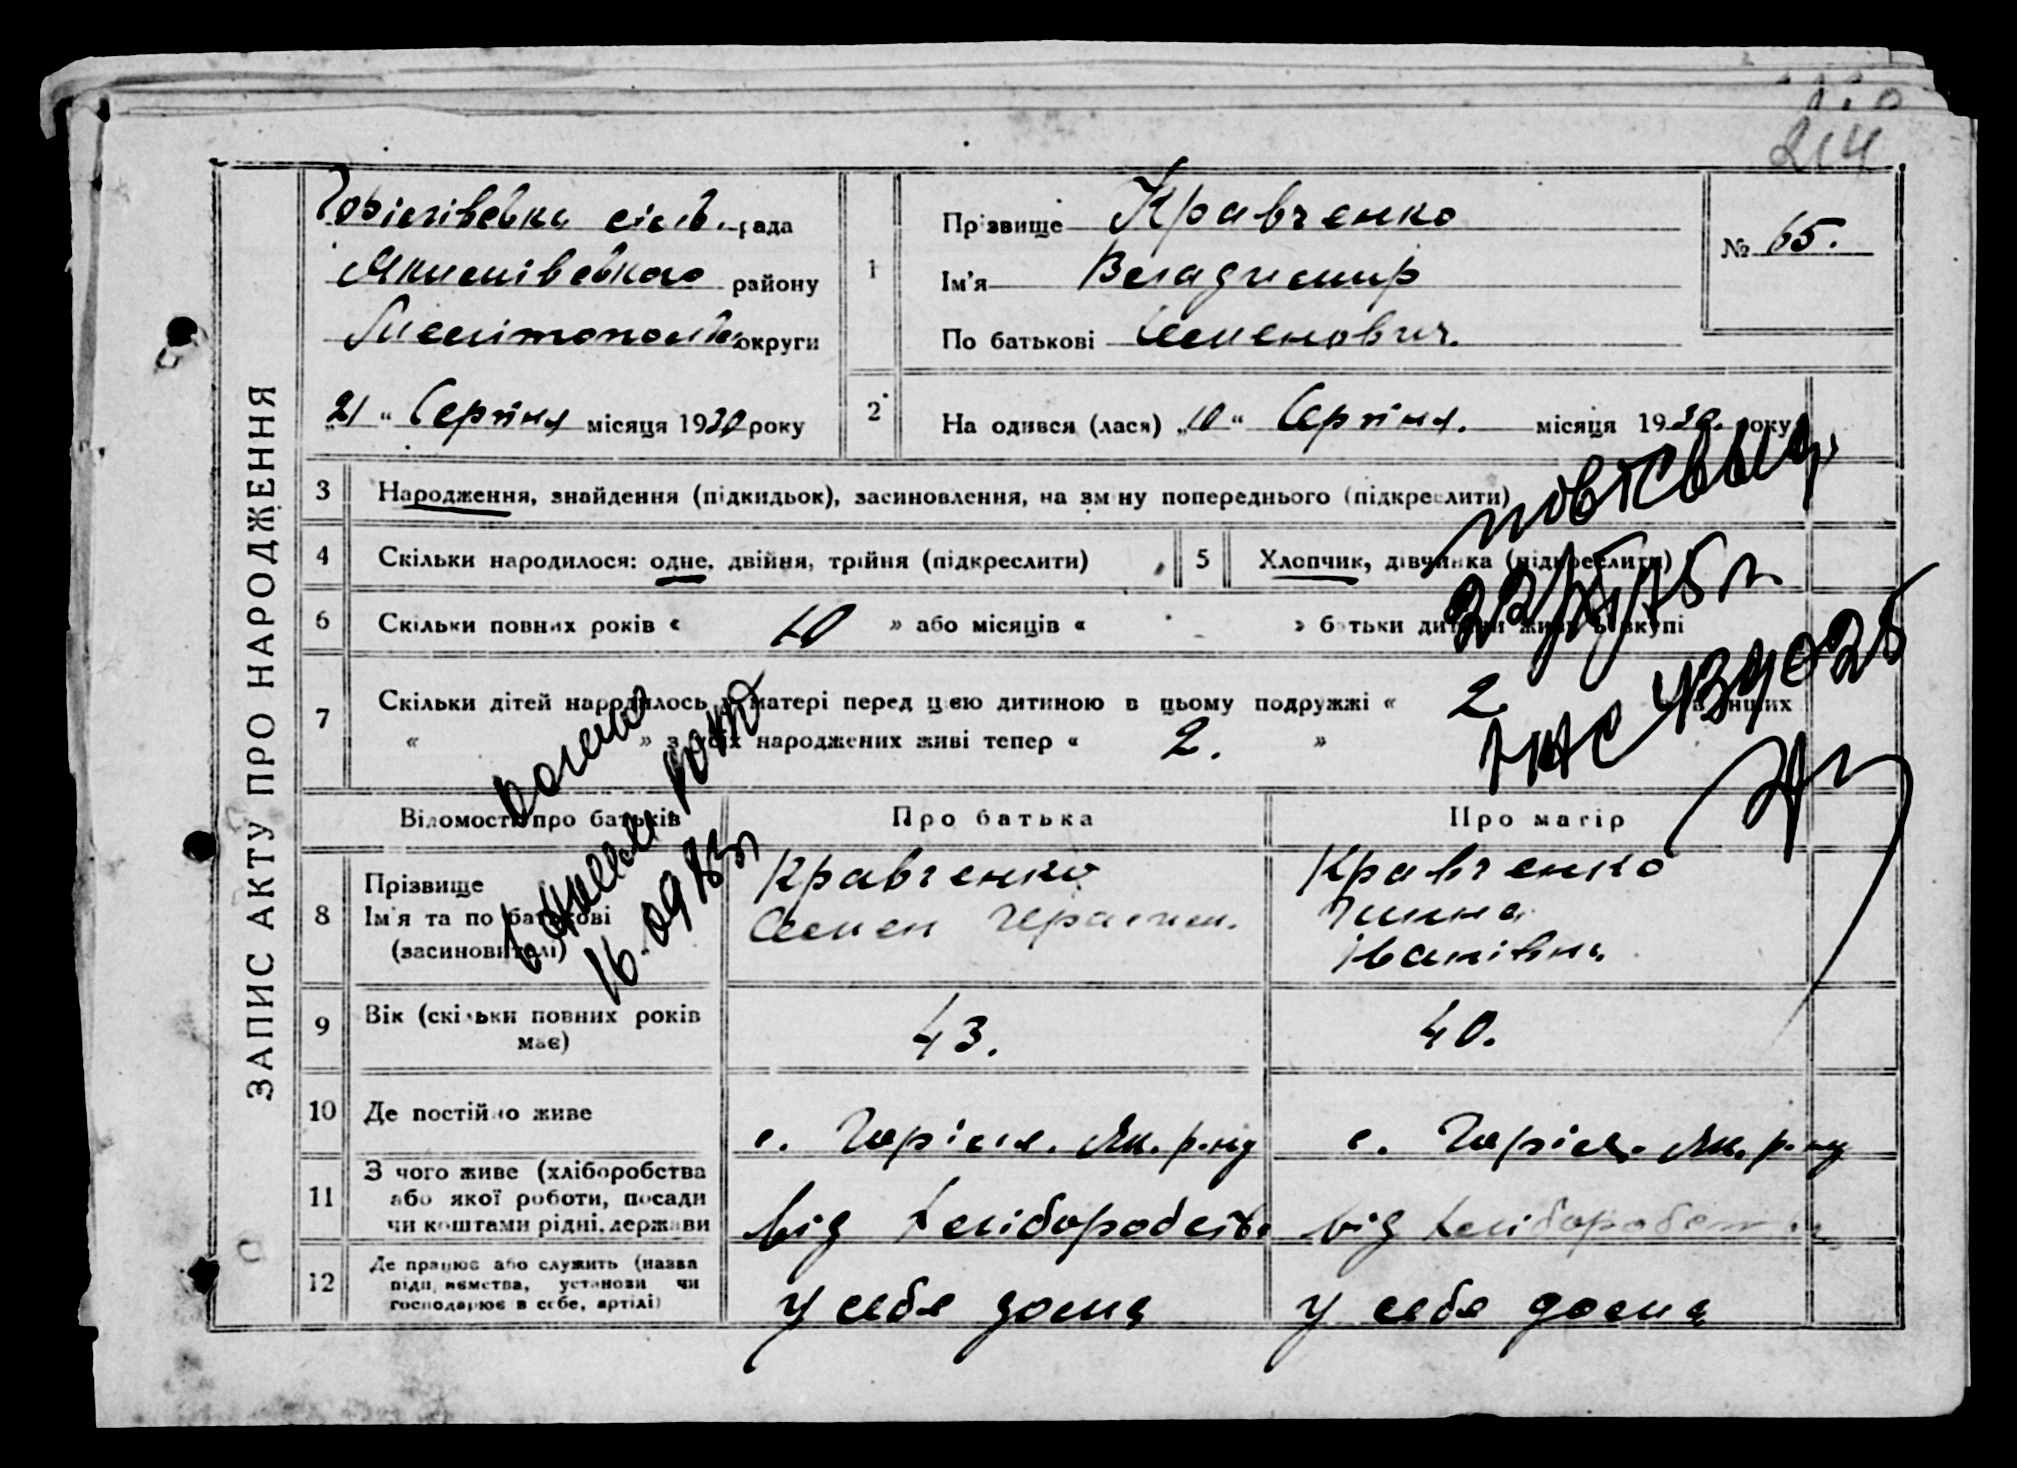 214
ЗАПИС АКТУ ПРО НАРОДЖЕННЯ
рада
району
округи
„21“ Серпня місяця 1930 року
1
Прізвище Кравченко
Ім'я Владимир
По батькові Семенович.
№ 65.
2
Народився (лася) „10“ Серпня. місяця 1930. року
повт свид
3 Народження, знайдення (підкидьок), засиновлення, на зміну попереднього (підкреслити)
4 Скільки народилося: одне, двійня, трійня (підкреслити)
5 Хлопчик, дівчинка (підкреслити)
6 Скільки повних років « 10 » або місяців « » батьки дитини живуть вкупі
7 Скільки дітей народилось у матері перед цією дитиною в цьому подружжі « 2 та інших
« » з усіх народжених живі тепер « 2. »
16.09.83
Відомості про батьків
Про батька
Про матір
8 Прізвище
Ім'я та по батькові
(засиновителі)
Кравченко
Семен Герасим.
Кравченко
Іванівна
9 Вік (скільки повних років має)
43.
40.
10 Де постійно живе
с. Горіл. Як. р-ну
с. Горіл. Як. р-ну
11 З чого живе (хліборобства
або якої роботи, посади
чи коштами рідні, держави
від хліборобства
від хліборобства
12 Де працює або служить (назва
підприємства, установи чи
господарює в себе, артілі)
у себе дома
у себе дома